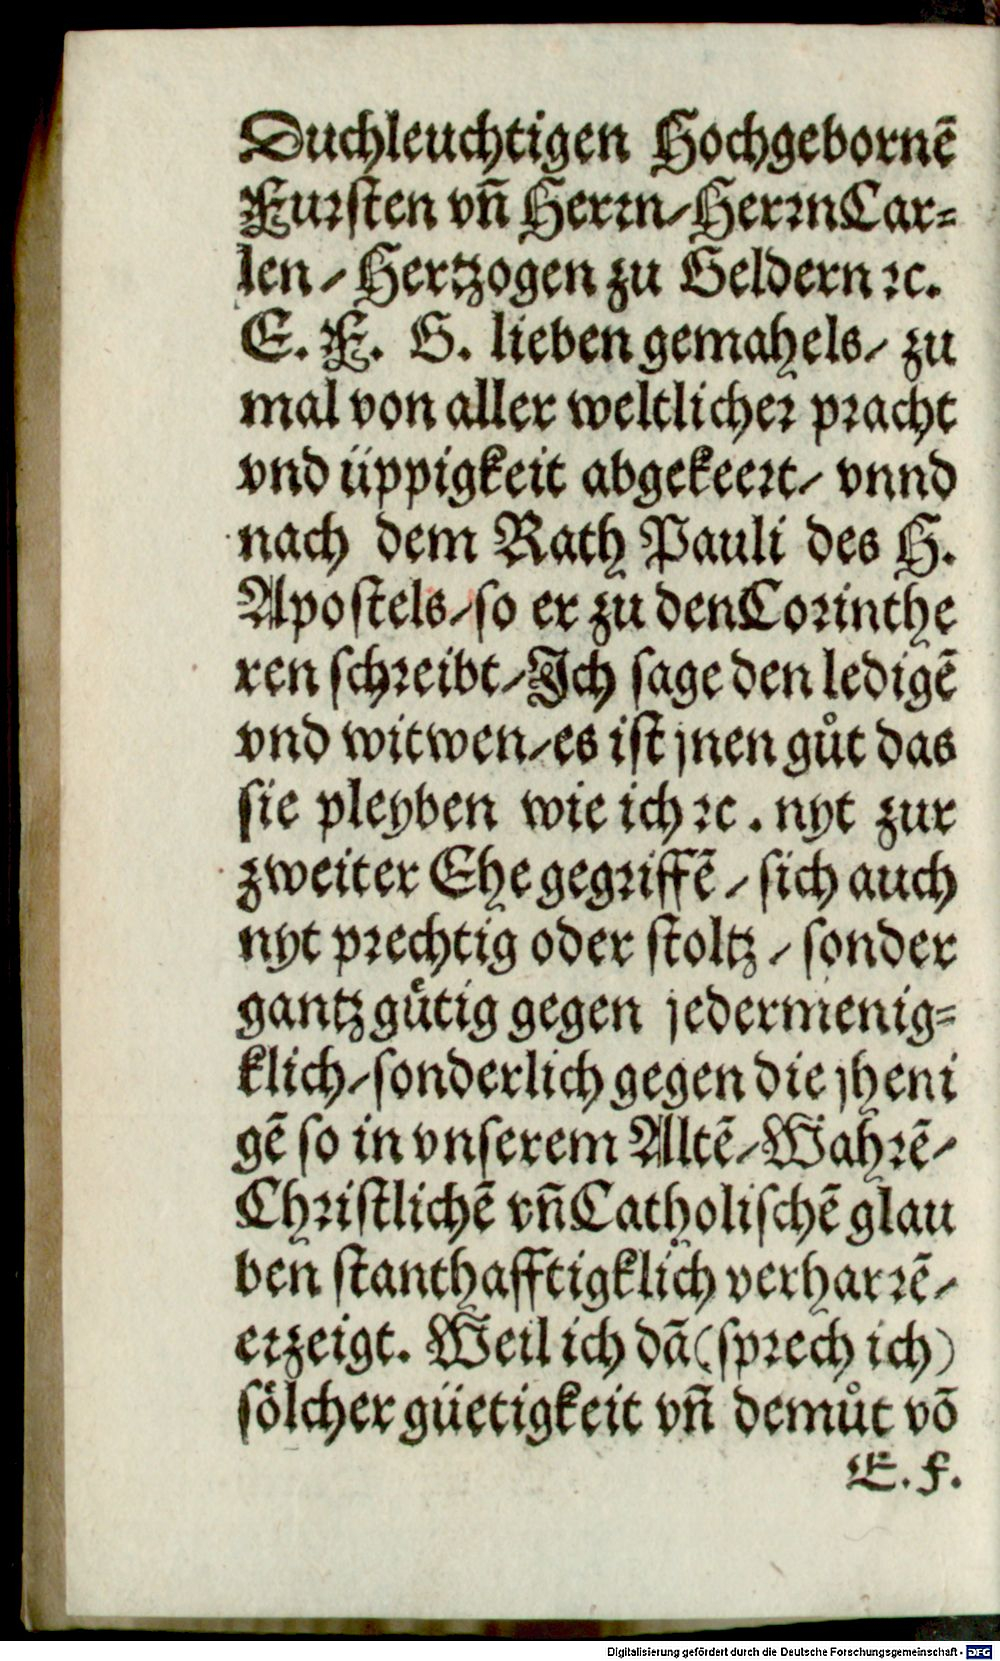 Duchleuchtigen Hochgebornē
Furſten vn̄ Herrn / Herrn Car⸗
len / Hertzogen zu Geldern ꝛc.
E. F. G. lieben gemahels / zu
mal von aller weltlicher pracht
vnd üppigkeit abgekeert / vnnd
nach dem Rath Pauli des H.
Apoſtels / ſo er zu den Corinthe
ren ſchreibt / Ich ſage den ledigē
vnd witwen / es iſt jnen gůt das
ſie pleyben wie ich ꝛc. nyt zur
zweiter Ehe gegriffē / ſich auch
nyt prechtig oder ſtoltz / ſonder
gantz gütig gegen jedermenig⸗
klich / ſonderlich gegen die jheni
gē ſo in vnſerem Altē / Wahrē /
Chriſtlichē vn̄ Catholiſchē glau
ben ſtanthafftigklich verharrē /
erzeigt. Weil ich dā (ſprech ich)
ſölcher güetigkeit vn̄ demůt vō
E. f.
Digitalisierung gefördert durch die Deutsche Forschungsgemeinschaft - DFG